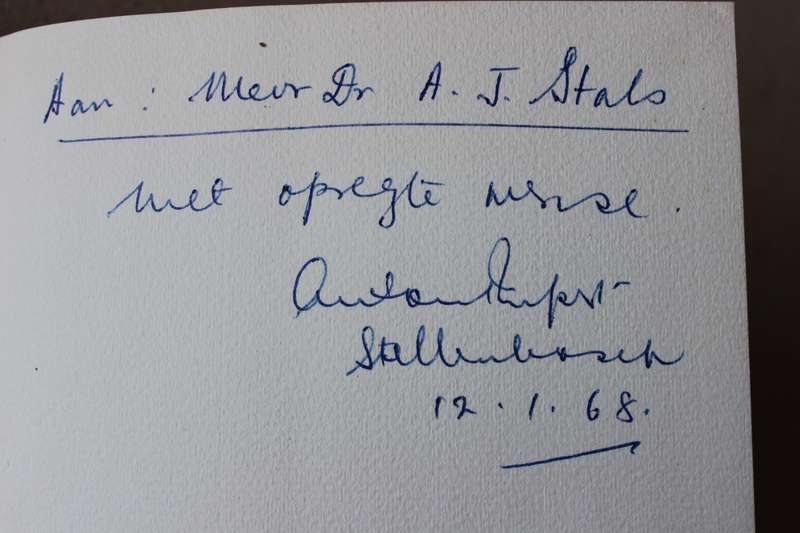 Aan : Mevr Dr A. J. Stals
met opregte wense.
Anton Rupert
Stellenbosch
12.1.68.